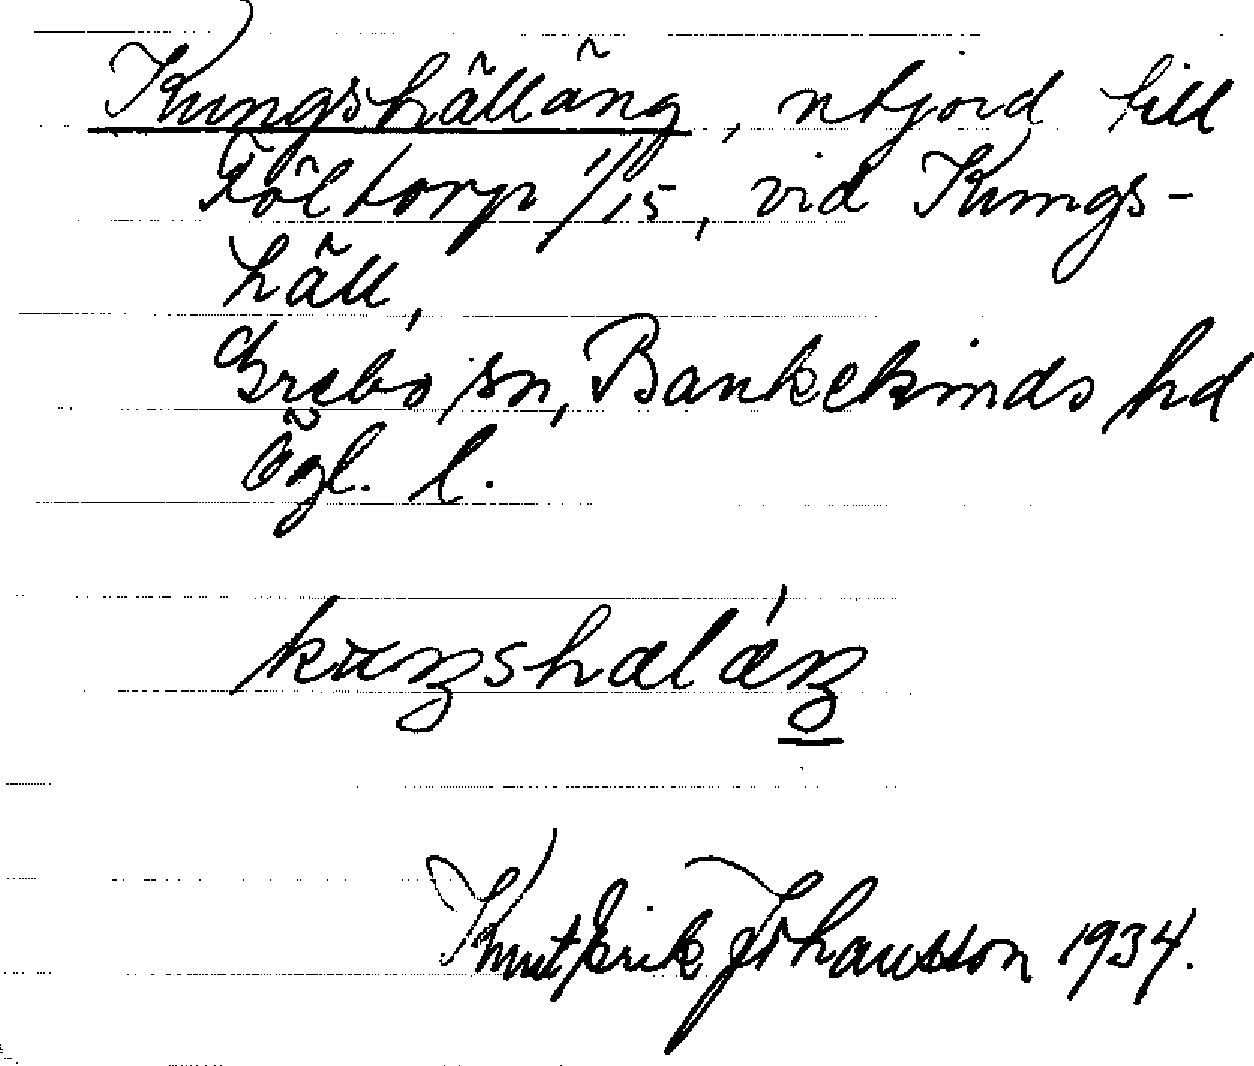 Kungshälläng, utjord till
Föltorp 1/15, vid Kungs-
häll,
Grebo sn, Bankekinds hd
Ögl. l.
kuŋshalǽŋ
Knut Erik Johansson 1934.